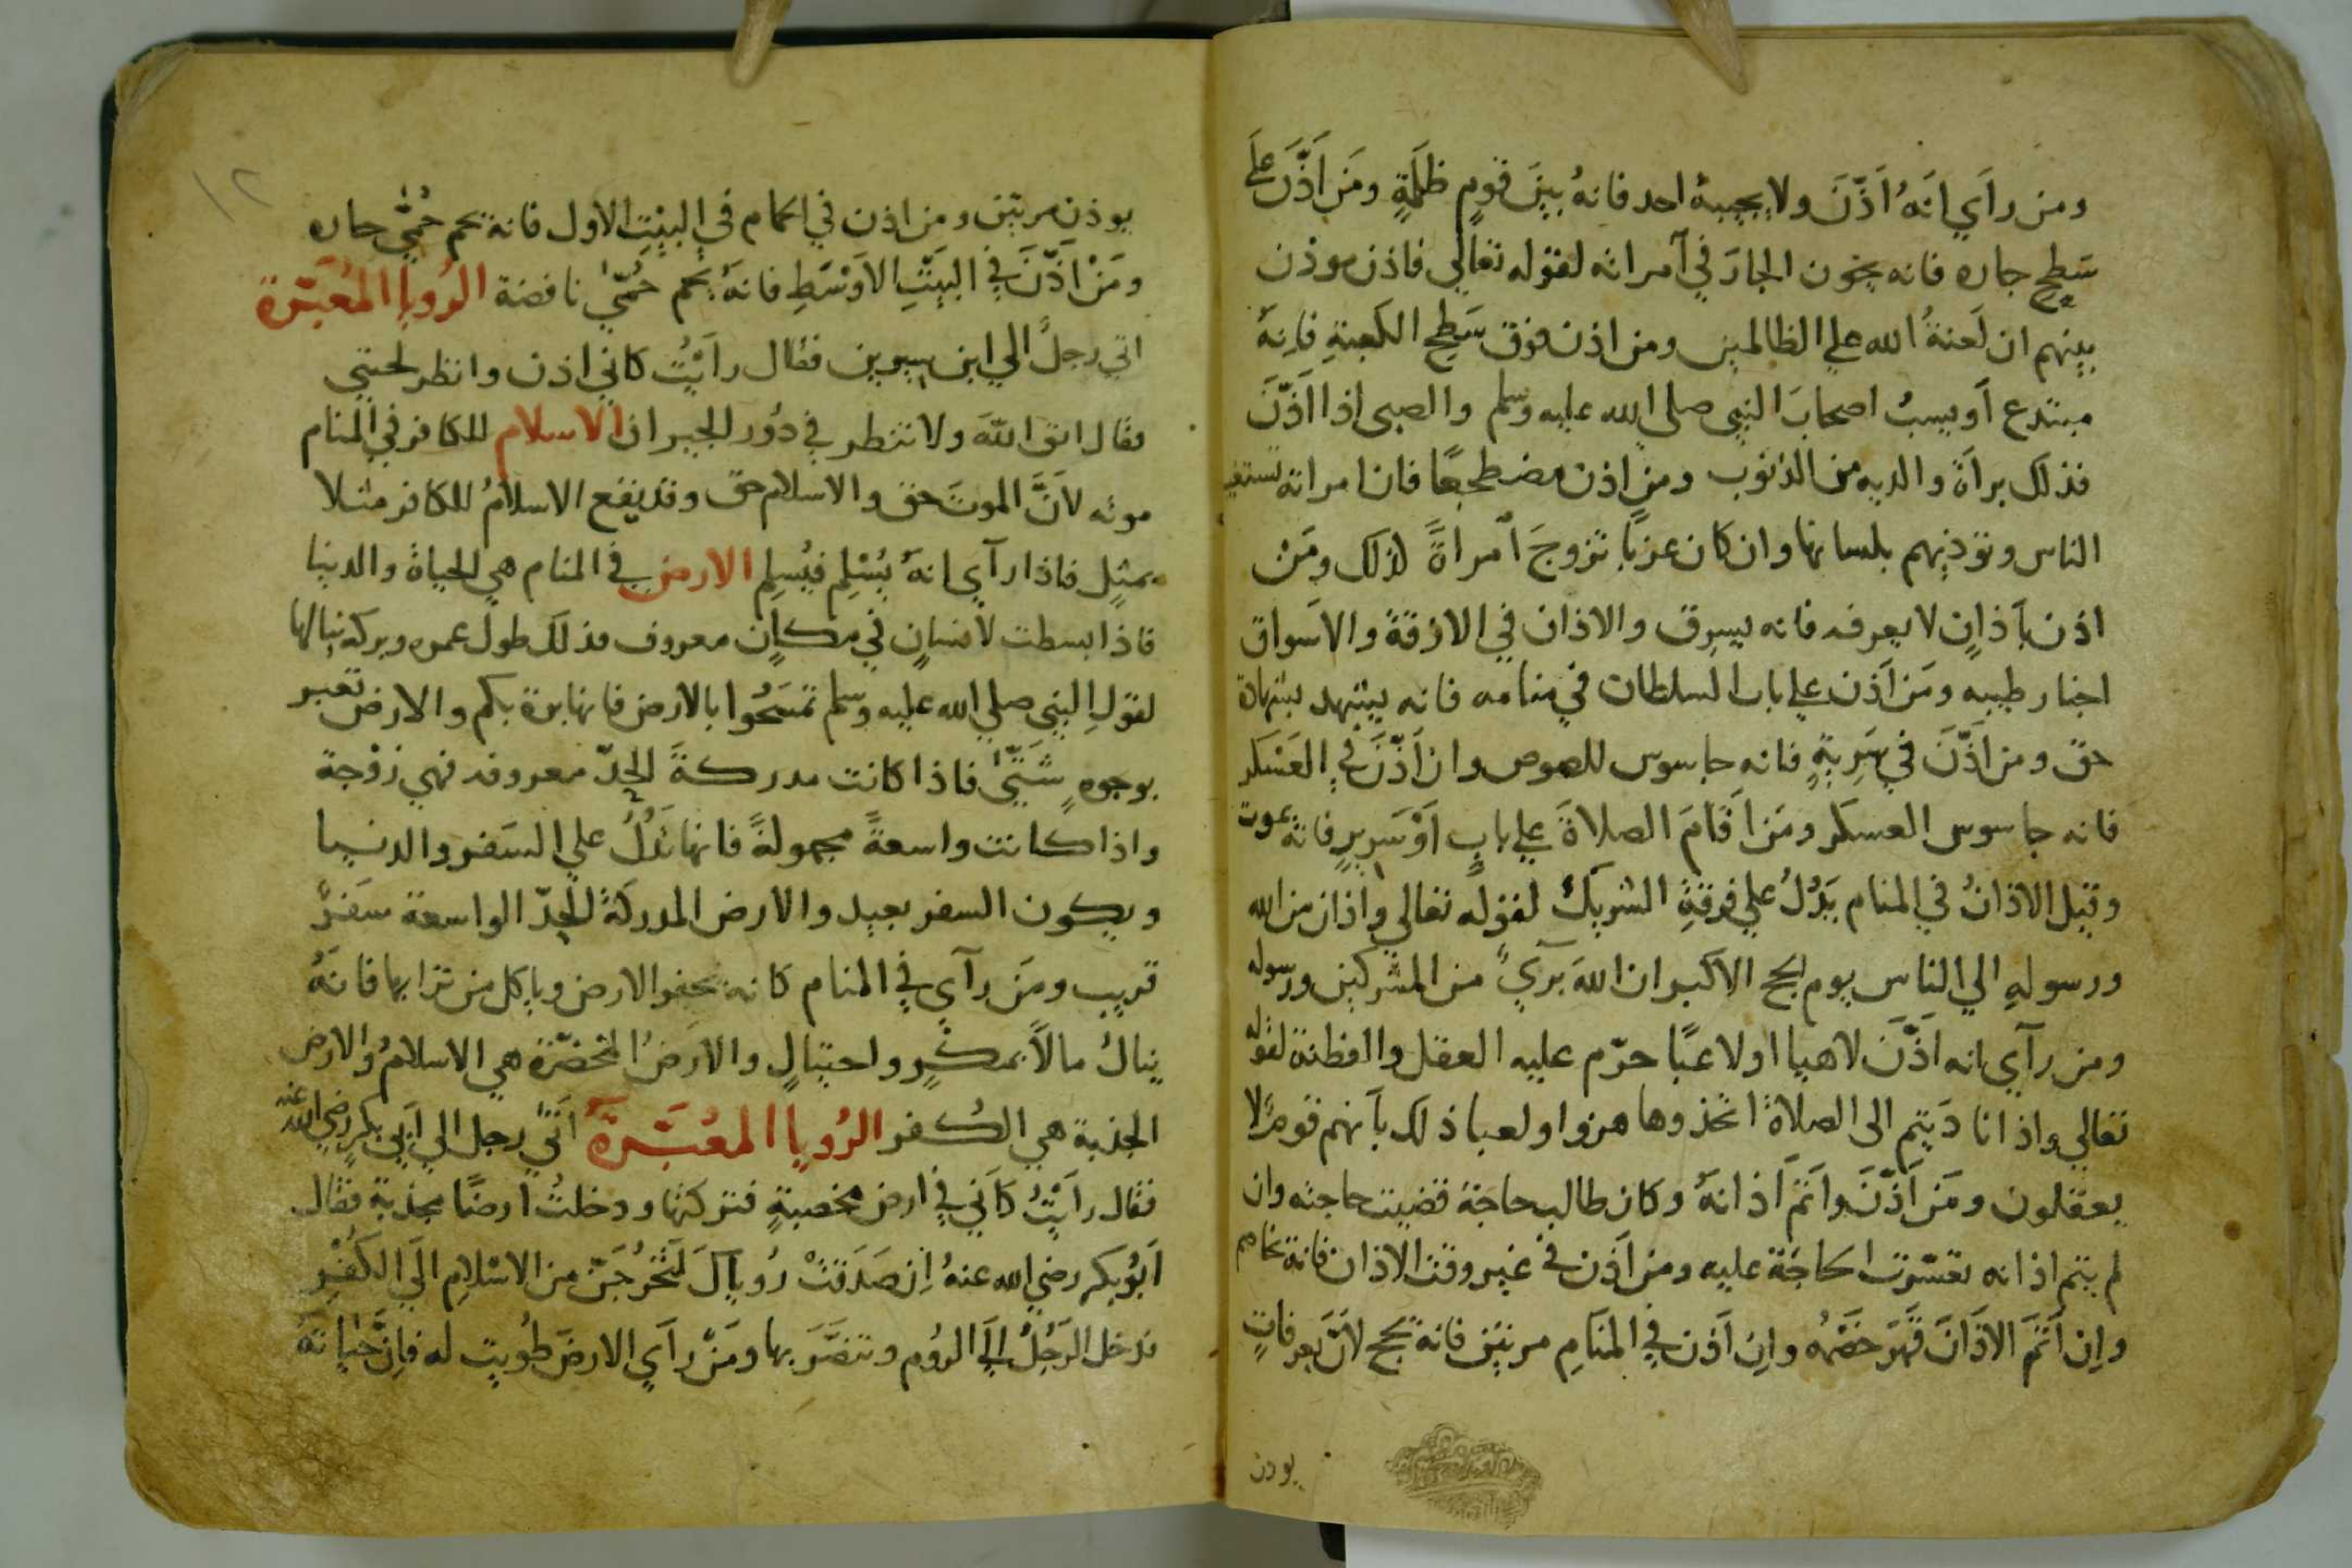 ومن رأي انه اَذَّنَ ولا يجيبهُ احد فانهُ بينَ قومٍ ظلَمَةٍ ومَن اَذَّنَ علَي
سَطحِ جاره فانه يخون الجارَ في آمراته لقوله تعالي فاذن موذن
بينهم ان لَعنةُ الله علي الظالمين ومن اذن فوق سَطحِ الكعبةِ فاِنهُ
مبتدع اَو يسبُ اصحابَ النبي صلي الله عليه وسلم والصبي اذا اَذَّنَ
فذلك براَة والديه من الذنوب ومن اذن مضطجعًا فان امراته تستغيب
الناس وتوذيهم بلسانها وان كان عزبًا تزوجَ اَمراةً لذلك ومَن
اذن بآَذانٍ لا يعرفه فانه يسرق والاذان في الازقة والاَسواق
اخبار طيبه ومَن اَذن علي باب السلطان في منامه فانه يشهد بشهادة
حق ومن اَذَّنَ في سَرِيةٍ فانه جاسوس للصوص وان اَذَّنَ في العَسْكر
فانه جاسوس العسكر ومَن اَقامَ الصلاةَ علي بابٍ اَوْ سَرِيرٍ فانهُ يموت
وقيل الاذانُ في المنام يَدُلُ علي فرقةِ الشريكُ لقوله تعالي واَذان من الله
ورسولهِ الي الناس يوم الحج الاكبر ان اللهَ بَريٌ من المشركين ورسوله
ومن رآي انه اَذَّنَ لاهيا اولاعبًا حرّم عليه العقل والفطنة لقوله
تعالي واذا نا دَيتم الى الصلاةَ اتخذوها هزوا ولعبا ذلك بآَنهم قومٌ لا
يعقلون ومَن اَذَّنَ واَتمَ اَذانهُ وكان طالب حاجة قضيت حاجته وان
لم يتم اذانه تعسّرت الحاجَة عليه ومن اَذن في غير وقت الاذان فانهُ يخاصم
واِن اَتمَ الاَذَانَ قَهَرَ خصْمهُ واِن اَذن في المنَامِ مرتين فانهُ يحج لاَنَّ بعرفاتٍ
يوذن
١٢
يوذن مرتين ومن اذن في الحمام في البيْتِ الاول فانهُ يحم حُمّي حاره
ومَنْ اَذَّنَ في البَيتِ الاَوْسَطِ فانهُ يحم حُمّي نافضة الرُويا المُعَبَّرة
اتي رجلٌ الي ابن سيرين فقال راَيْتُ كاني اذن وانظر لحيتي
فقال اتق اللهَ ولا تنظر في دُور الجيران الاسلام للكافر في المنام
موته لاَنَّ الموتَ حق والاسلام حق وقد يقع الاسلامُ للكافر مثلا
بمثلٍ فاذا رآي انهُ يُسْلِم فيُسلِم الارض في المنام هي الحياة والدنيا
فاذا بسطت لاَنسانٍ في مكانٍ معروف فذلك طول عمره وبركه ينالها
لقولِ النبي صلي الله عليه وسلم تمسَحُوا بالارض فانها برة بكم والارض تعبر
بوجوهٍ شَتَّي فاذا كانت مدركةً الحدّ معروفه فهي زوْجة
واذا كانت واسعةً مجهولةً فانها تَدُلُّ علي السَفر والدنيا
ويكون السفر بعيد والارض المدركَةُ الحَدّ الواسعة سَفرٌ
قريب ومَن رآي في المنام كانه يحفر الارض وياكل من ترابها فانهُ
ينالُ مالاً بمكرٍ واحتيالٍ والاَرضُ المخضرّة هي الاسلامُ والارض
الجدبة هي الكُفر الرُويا المُعَبَّرة اَتَي رجل الي اَبي بكر رضي الله عنه
فقال راَيْتُ كاَني في ارض مخصبةٍ فتركتها ودخلتُ ارضًا مجدبة فقال
اَبُوبكر رضي الله عنهُ اِن صَدَقتْ رُوياكَ لَتخرُجَنّ من الاسْلامِ اِلَي الكُفْرِ
فدخل الرَجُلُ اِلَي الرُوم وتنصَّرَ بها ومَنْ راَي الارضَ طُويت له فاِنَّ حياتهُ